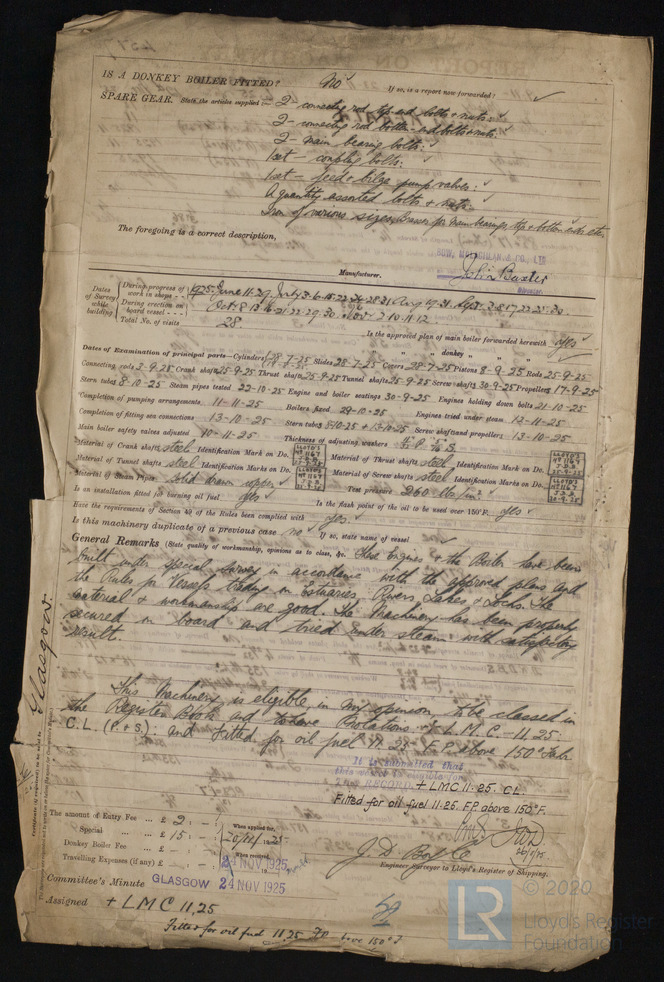 IS A DONKEY BOILER FITTED? No If so, is a report now forwarded?
SPARE GEAR. State the articles supplied:— 2 - connecting rod top end bolts + nuts:
2 - connecting rod bottom end bolts + nuts:
2 - main bearing bolts:
1 set - coupling bolts:
1 set - feed + bilge pump valves:
A quantity assorted bolts + nuts
Iron of various sizes, brasses for main bearings, top + bottom ends etc.
The foregoing is a correct description,
BOW, McLACHLAN & CO., LTD
John Baxter
Manufacturer.
Director.
Dates of Survey while building
During progress of work in shops - - 1925: June 11. 29, July 3. 6. 15. 22. 24. 28. 31 Aug 19. 31. Sept 2. 8. 17. 22. 25. 30.
During erection on board vessel - - - Oct. 8. 13. 16. 21. 22. 29. 30. Nov. 2. 10. 11. 12
Total No. of visits 28
Is the approved plan of main boiler forwarded herewith yes
" " " donkey " " "
Dates of Examination of principal parts—Cylinders 28-7-25 Slides 28-7-25 Covers 28-7-25 Pistons 8-9-25 Rods 25-9-25
Connecting rods 2-9-25 Crank shaft 25-9-25 Thrust shaft 25-9-25 Tunnel shafts 25-9-25 Screw shaft 30-9-25 Propeller 17-9-25
Stern tubes 8-10-25 Steam pipes tested 22-10-25 Engine and boiler seatings 30-9-25 Engines holding down bolts 21-10-25
Completion of pumping arrangements 11-11-25 Boilers fixed 29-10-25 Engines tried under steam 12-11-25
Completion of fitting sea connections 13-10-25 Stern tube 8-10-25 + 13-10-25 Screw shaft and propeller 13-10-25
Main boiler safety valves adjusted 10-11-25 Thickness of adjusting washers
Material of Crank shaft steel Identification Mark on Do. LLOYD'S No 1167 J.D.B. 25-9-25 Material of Thrust shaft steel Identification Mark on Do. LLOYD'S No 1167 J.D.B. 25-9-25
Material of Tunnel shafts steel Identification Marks on Do. Material of Screw shafts steel Identification Marks on Do. LLOYD'S No 1167 J.D.B. 30-9-25
Material of Steam Pipes solid drawn copper Test pressure 360 lbs / in²
Is an installation fitted for burning oil fuel yes Is the flash point of the oil to be used over 150°F. yes
Have the requirements of Section 49 of the Rules been complied with yes
Is this machinery duplicate of a previous case no If so, state name of vessel
General Remarks (State quality of workmanship, opinions as to class, &c. These Engines & the Boiler have been
built under special survey in accordance with the approved plans and
the Rules for Vessels trading in Estuaries, Rivers, Lakes & Lochs. The
material & workmanship are good. The Machinery has been properly
secured in board and tried under steam with satisfactory
result.
This Machinery is eligible, in my opinion to be classed in
the Register Book and to have Notations + L.M.C - 11.25:
C.L. (P. & S.): and Fitted for oil fuel 11.25 F.P. above 150° Fah.
It is submitted that
this vessel is eligible for
THE RECORD. + LMC 11.25. CL.
Fitted for oil fuel 11.25. F.P. above 150°F.
26/11/25
The amount of Entry Fee .. £ 2 : - :
Special .. £ 15 : - :
Donkey Boiler Fee .. £ : :
Travelling Expenses (if any) £ : :
When applied for, 20/11/1925
When received,
24 NOV 1925
J. D. Boyle
Engineer Surveyor to Lloyd's Register of Shipping.
Committee's Minute GLASGOW 24 NOV 1925
Assigned + LMC 11,25
Fitted for oil fuel 11 25 FP above 150°F
Glasgow.
© 2020
LR
Lloyd's Register
Foundation